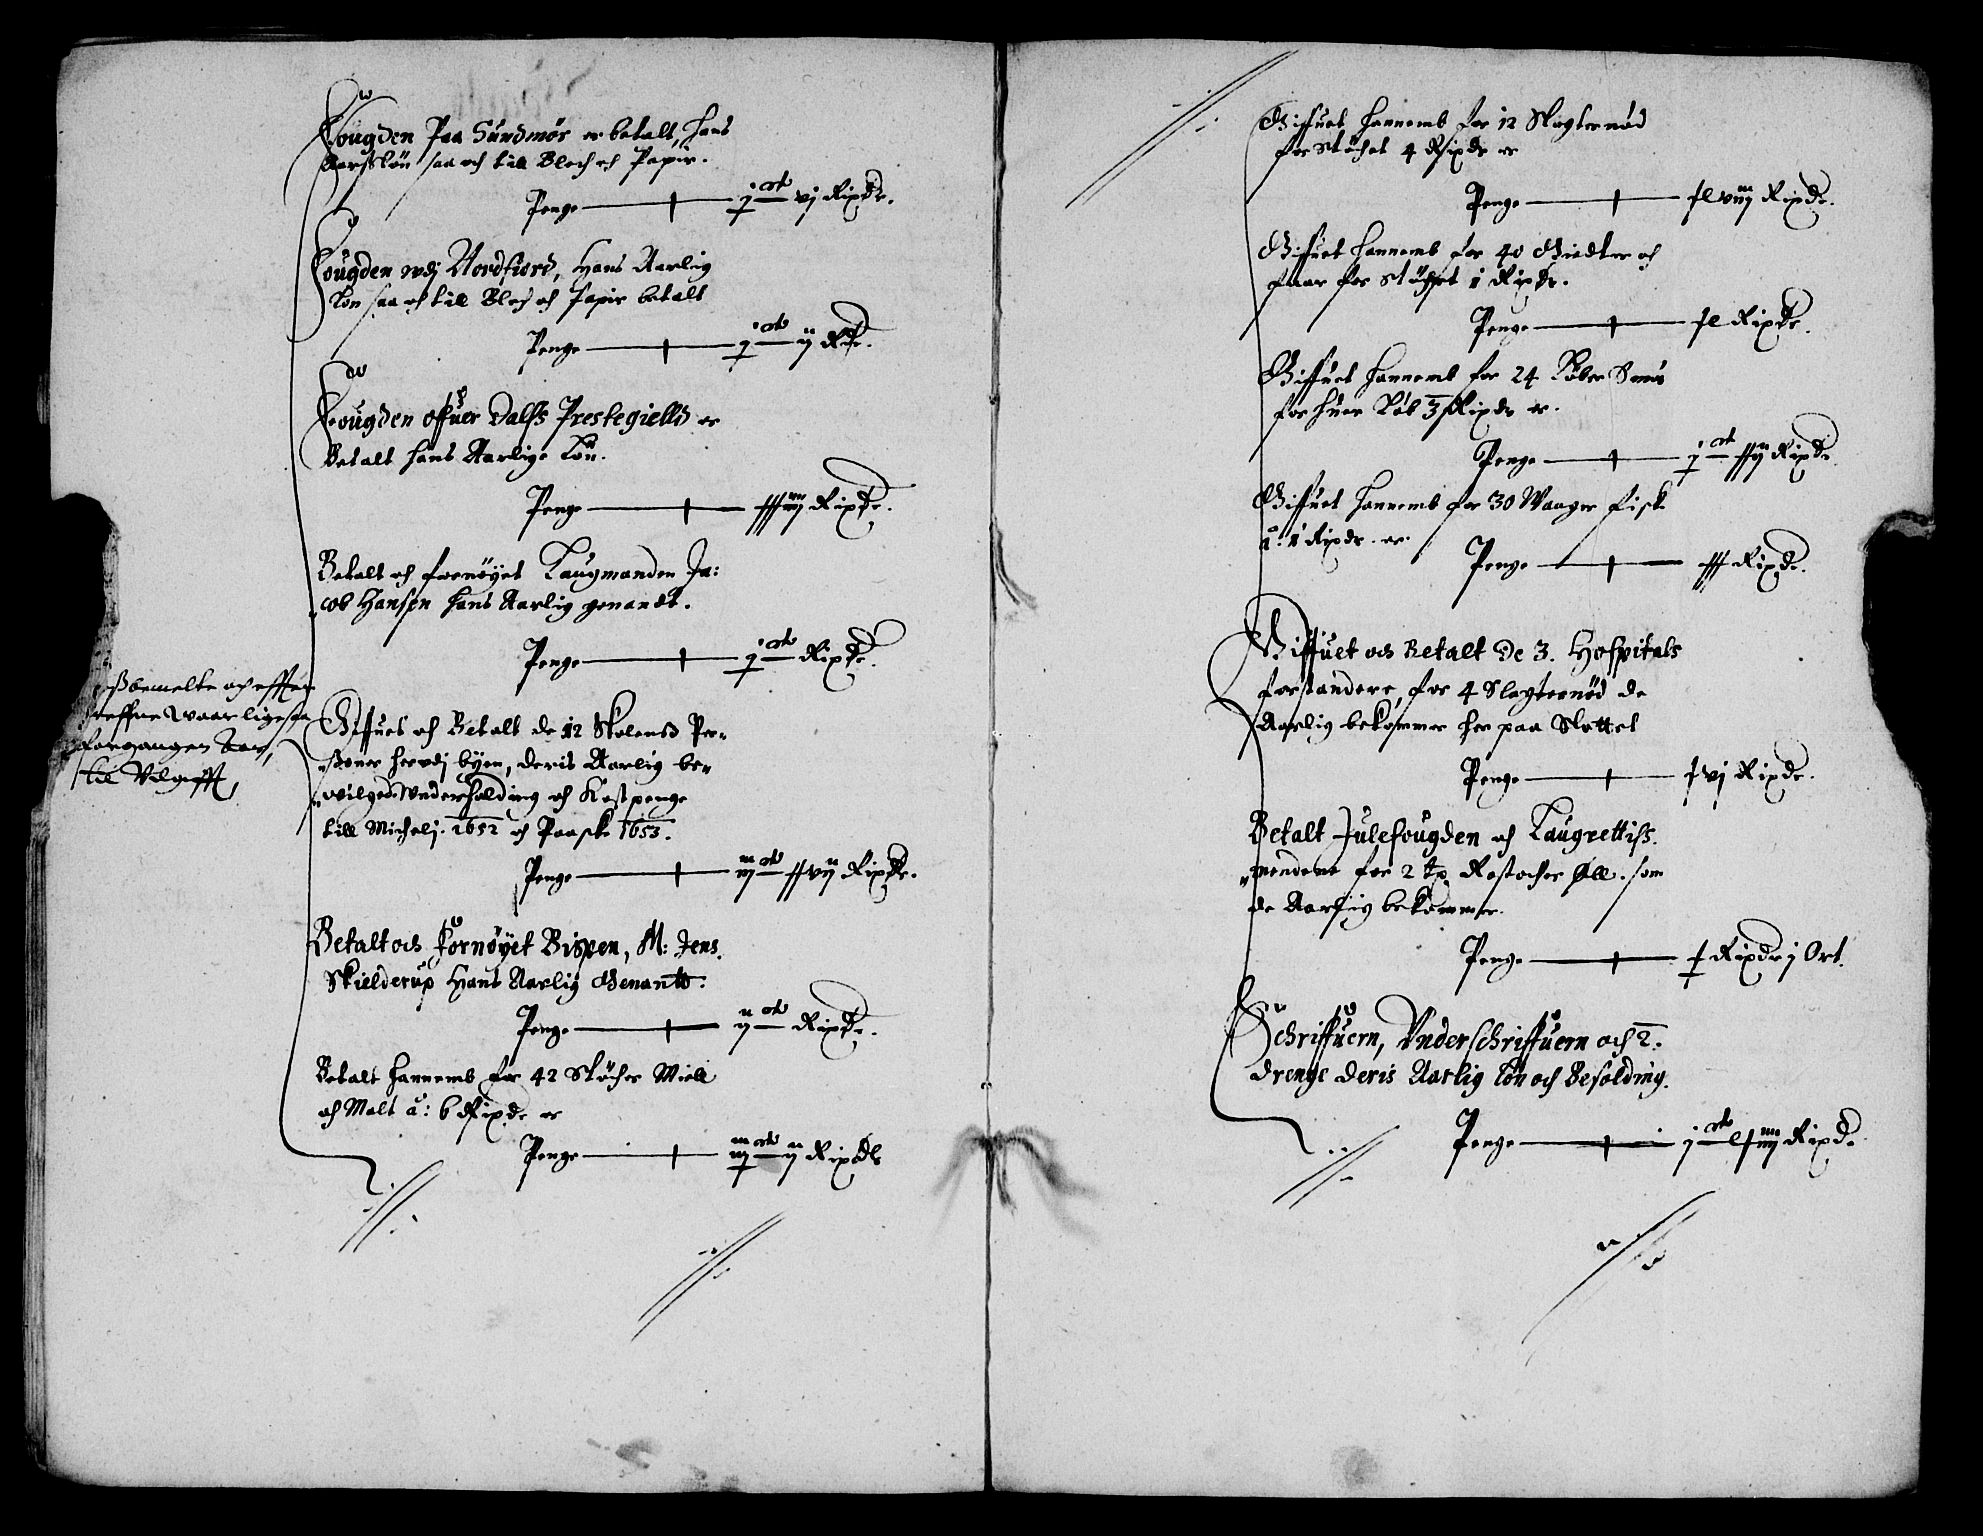 Fougden Paa Sundmør er betalt, hans
Aarsløn saa och till Blech och Papir.
Penge j C vj Rixdr.
Fougden vdj Nordfiord, Hans Aarlig
Løn saa och till Blech och Papir betalt
Penge j C ij Rdr.
Fougden offuer Dalss Prestegielld er
Betalt hans Aarlige Løn.
Penge Rixdr.
Betalt och fornøyet Laugmanden Ja:
cob Hansen hans Aarlig genandt.
Penge j C Rixdr.
och effter
waar lige saa
forgangen Aar,
til Vdgifft
Giffuet och Betalt de 12 Skolens Per„
„soner her vdj byen, deris Aarlig be„
„vilgede Vnderholding och Kostpenge
till Michelj. 1652 och Paaske 1653.
Penge iij C xxvij Rixdr.
Betalt och Fornøyet Bispen, M: Jens
Skielderup Hans Aarlig Genantt.
Penge ij C Rixdr.
Betalt hannemb for 42 Støcher Miell
och Malt á: 6 Rixdr er
Penge ij Rixdlr
Giffuet hannemb for 12 Slagternød
for støchet 4 Rixdr er
Penge xlviij Rixdr.
Giffuet hannemb for 40 Giedter och
faar for støchet 1 Rixdr.
Penge xl Rixdr.
Giffuet hannemb for 24 Løber Smør
for huer Løb Rixdr er.
Penge j C Rixdr.
Giffuet hannemb for 30 Waager fisk
á: 1 Rixdr. er.
Penge xxx Rixdr.
Giffuet och Betalt de 3. Hospitals
forstandere, for 4 Slagternød de
Aarlig bekommer her paa Slottet
Penge xvj Rixdr.
Betalt Julefougden och Laugrettiss
„mendene for 2 tr. Rostocher Øll. som
de Aarlig bekommer.
Penge x Rixdr j Ort.
Schriffuern, Vnderschriffuern och 2.
drenge deris Aarlig Løn och Besolding.
Penge j C Rixdr